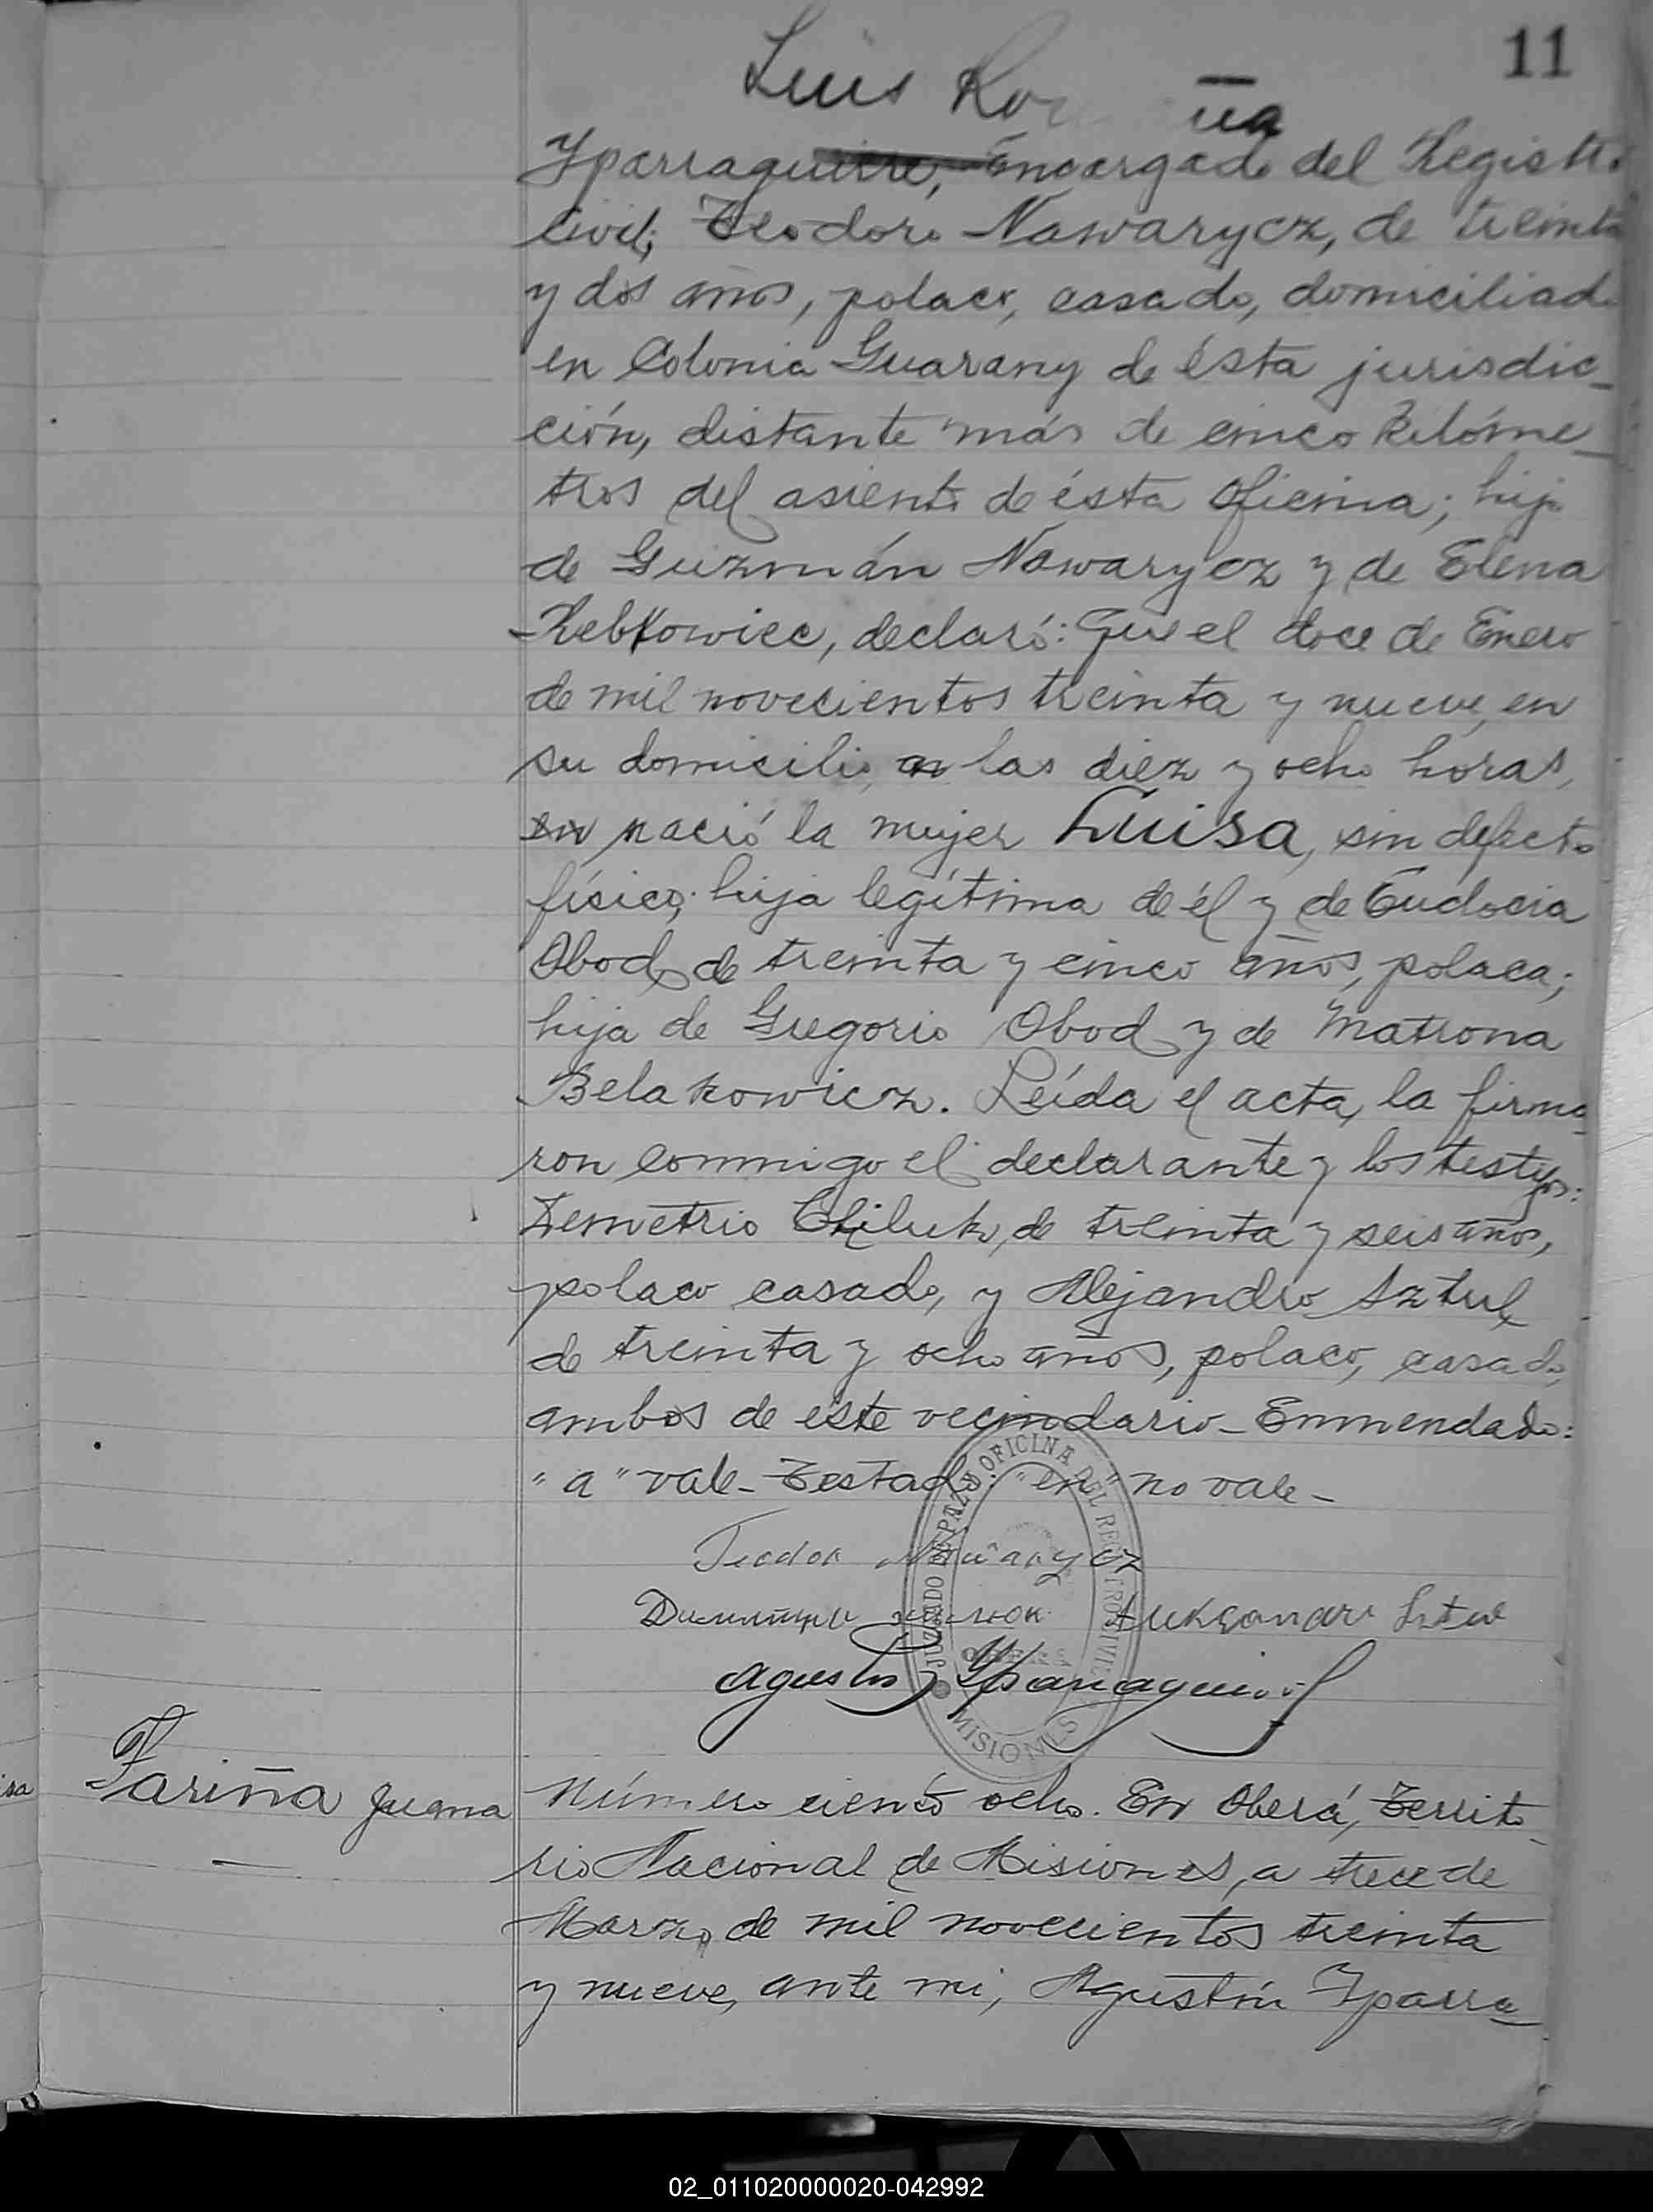 11
Luis
Yparraguirre, encargado del Registro
Civil; Teodoro Nawarycz, de treinta
y dos años, polaco, casado, domiciliado
en Colonia Guarany de ésta jurisdic-
ción, distante más de cinco kilóme-
tros del asiento de ésta oficina; hijo
de Guzmán Nawarycz y de Elena
declaró: Que el doce de Enero
de mil novecientos treinta y nueve, en
su domicilio, a las diez y ocho horas,
en nació la mujer Luisa, sin defecto
físico; hija legítima de él y de Eudocia
Obod, de treinta y cinco años, polaca;
hija de Gregorio Obod y de Matrona
Belakowicz. Leída el acta, la firma-
ron conmigo el declarante y los testigos:
Demetrio Chiluk, de treinta y seis años,
polaco casado, y Alejandro Sztul,
de treinta y ocho años, polaco, casado,
ambos de éste vecindario - Enmendado:
"a" vale - Testado: "en" no vale -
JUZGADO DE PAZ Y OFICINA DEL REGISTRO CIVIL
OBERA
MISIONES
Teodor Nawarycz
Aleksandr
Agustín Yparraguirre
Fariña Juana
Número ciento ocho. En Oberá, Territo-
rio Nacional de Misiones, a trece de
Marzo, de mil novecientos treinta
y nueve, ante mi, Agustín Yparra-
02_011020000020-042992